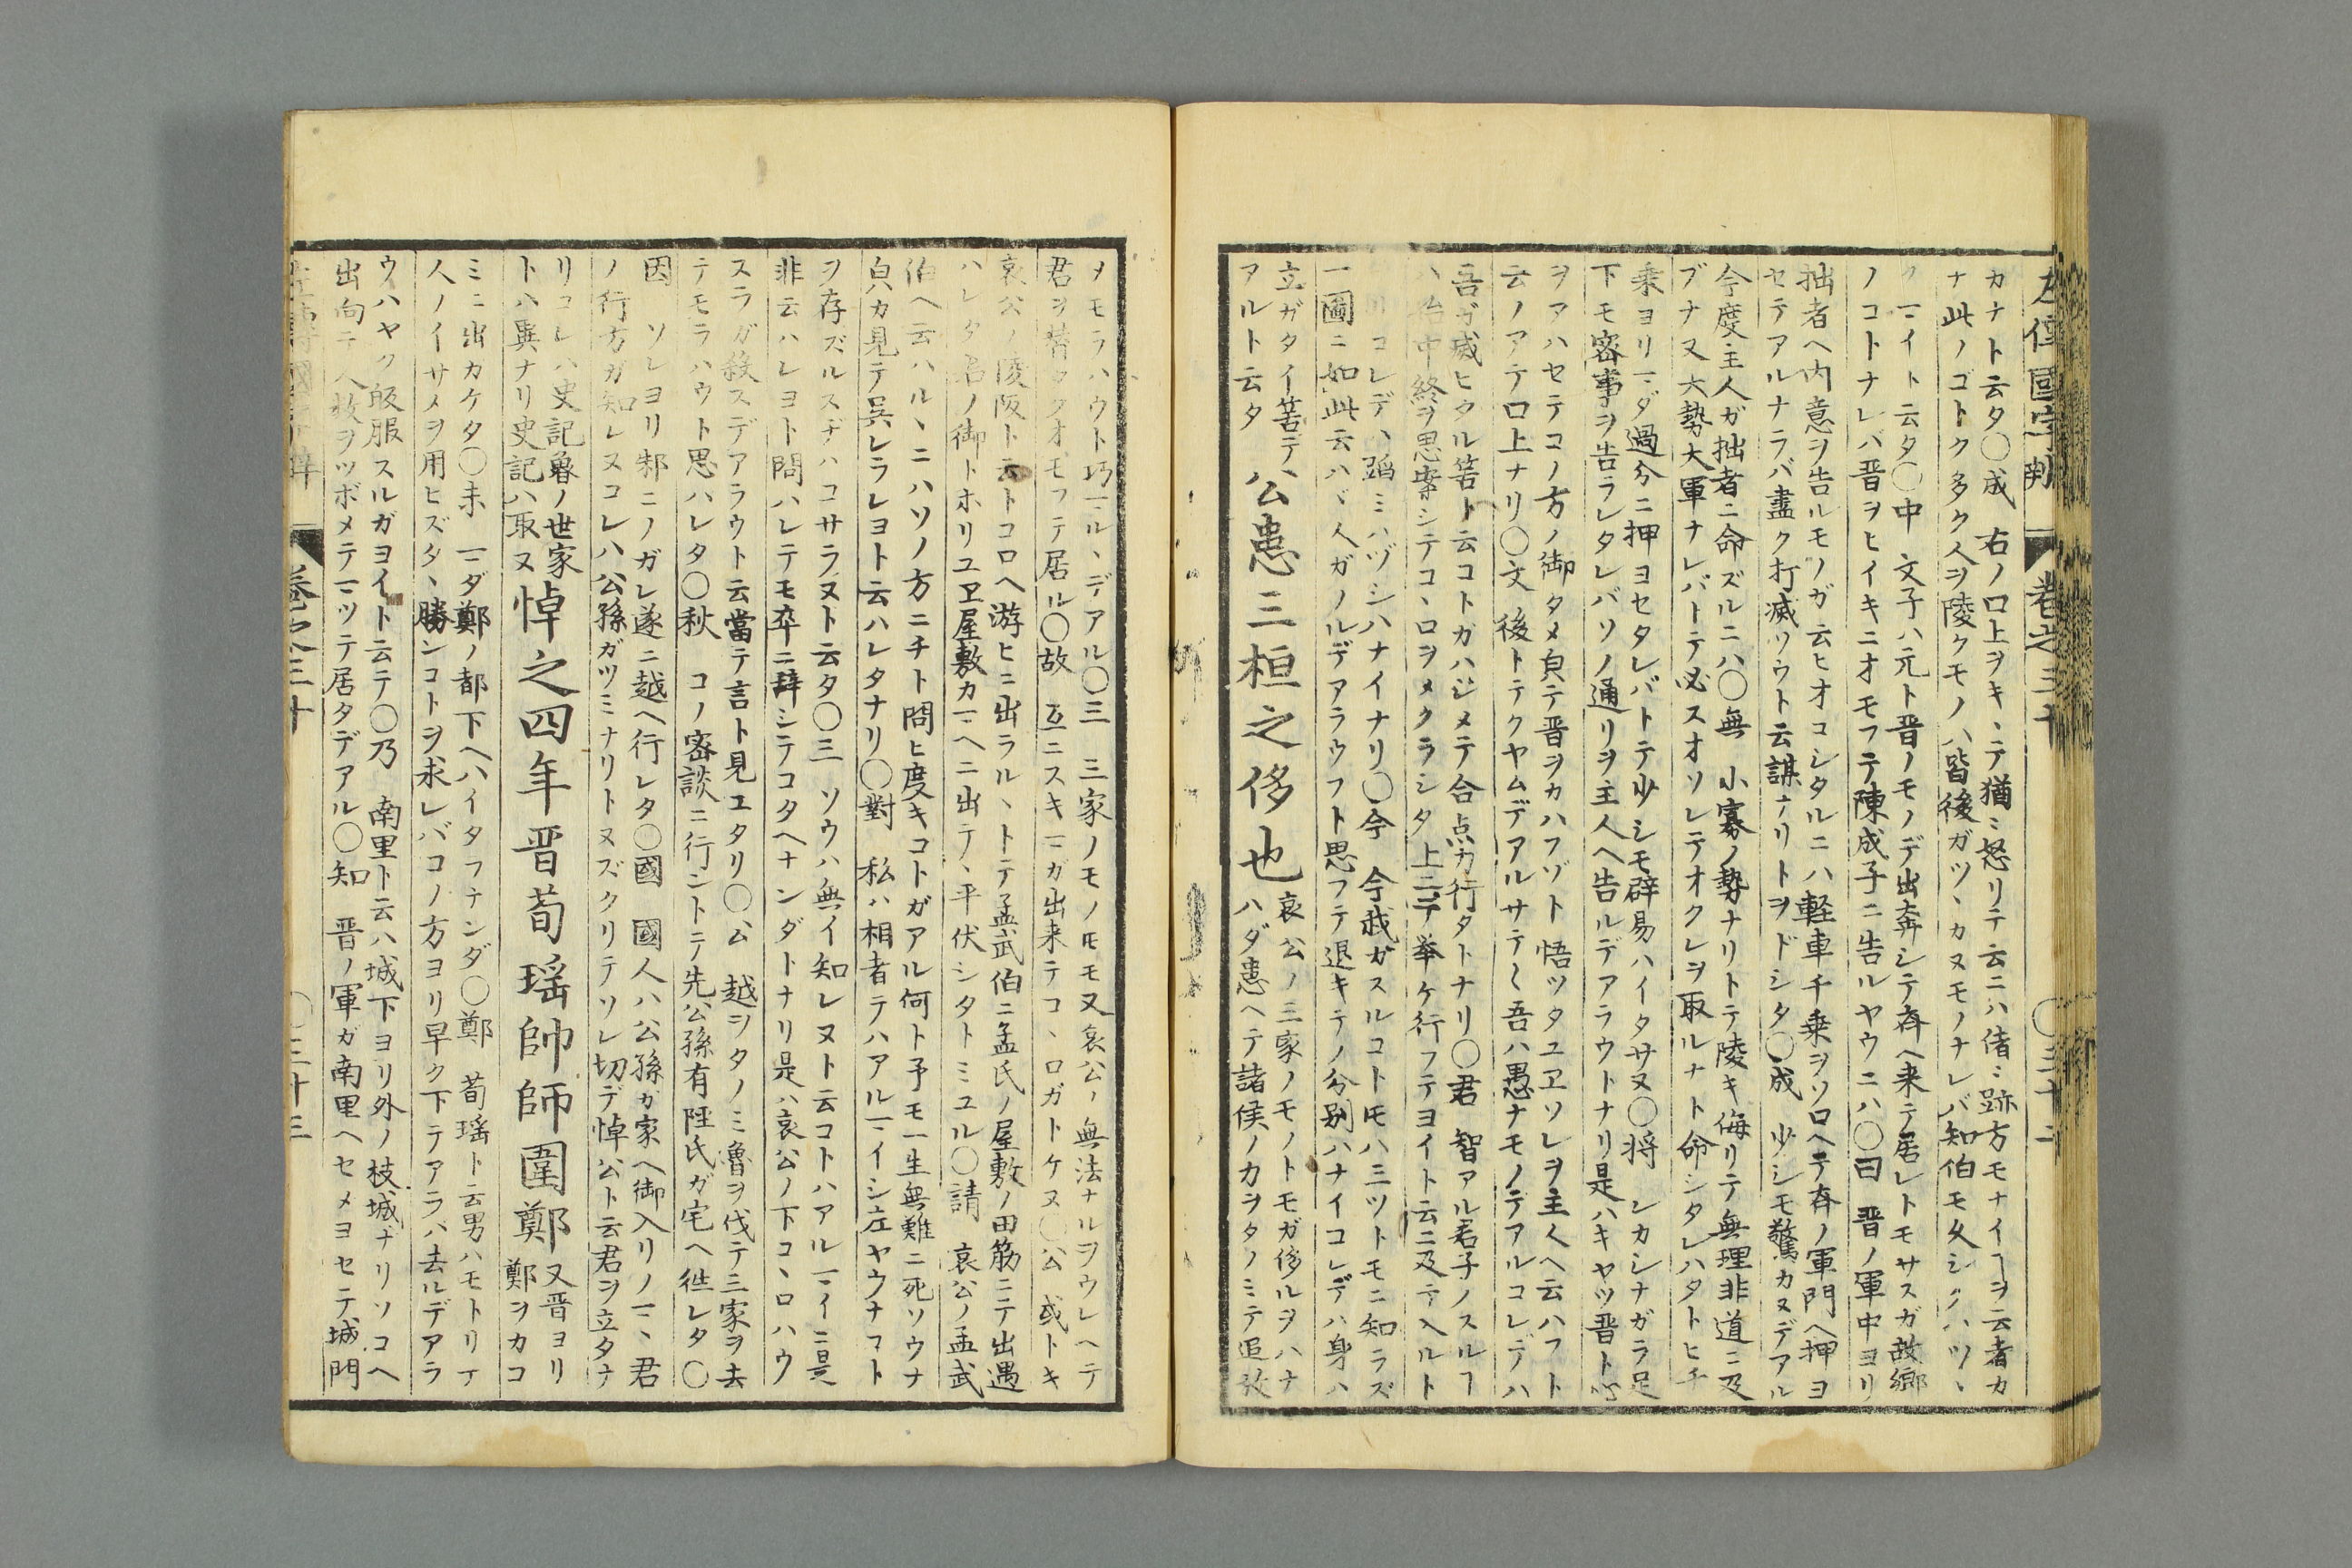 左傳國字辨 卷之三十 〇三十二
カナト云タ〇成 右ノ口上ヲキヽテ猶ミ怒リテ云ニハ偖ミ跡方モナイヿヲ云者カ
ナ此ノゴトク多ク人ヲ陵クモノハ皆後ガツヽカヌモノナレバ知伯モ久シクハツヽ
イト云タ〇中 文子ハ元ト晋ノモノデ出奔シテ斉ヘ来テ居レトモサスガ故郷
ノコトナレバ晋ヲヒイキニオモフテ陳成子ニ告ルヤウニハ〇曰 晋ノ軍中ヨリ
拙者ヘ内意ヲ告ルモノガ云ヒオコシタルニハ軽車千乗ヲソロヘテ斉ノ軍門ヘ押ヨ
セテアルナラバ盡ク打滅ソウト云謀ナリトヲドシタ〇成 少シモ驚カヌデアル
今度主人ガ拙者ニ命ズルニハ〇無 小寡ノ勢ナリトテ陵キ侮リテ無理非道ニ及
ブナ又大勢大軍ナレバトテ必スオソレテオクレヲ取ルナト命シタレハタトヒ千
乗ヨリマダ過分ニ押ヨセタレバトテ少シモ辟易ハイタサヌ〇将 シカシナガラ足
下モ密事ヲ告ラレタレバソノ通リヲ主人ヘ告ルデアラウトナリ是ハキヤツ晋ト
ヲアハセテコノ方ノ御タメ負テ晋ヲカハフゾト悟ツタユヱソレヲ主人ヘ云ハフト
云ノアテ口上ナリ〇文 後トテクヤムデアルサテ〱吾ハ愚ナモノテアルコレデハ
吾ガ滅ヒタル筈ト云コトガハジメテ合点カ行タトナリ〇君 智アル君子ノスルヿ
ハ始中終ヲ思案シテコヽロヲメクラシタ上ニテ挙ケ行フテヨイト云ニ及テ入ルト
リコレデハ蹈ミハヅシハナイナリ〇今 今我ガスルコトモハ三ツトモニ知ラズ
一圖ニ如此云ハヾ人ガノルデアラウフト思フテ退キテノ分別ハナイコレデハ身ハ
立ガタイ筈デ 公患三桓之侈也 哀公ノ三家ノモノトモガ侈ルヲハナ
アルト云タ ハダ患ヘテ諸侯ノカヲタノミテ追放
メモラハウト巧マルヽデアル〇三 三家ノモノモ又哀公ノ無法ナルヲウレヘテ
君ヲ替タクオモフテ居ル〇故 互ニスキマガ出来テコヽロガトケヌ〇公 或トキ
哀公ノ陵阪ト云トコロヘ游ヒニ出ラルヽトテ孟武伯ニ孟氏ノ屋敷ノ田筋ニテ出遇
ハレタ君ノ御トホリユヱ屋敷カマヘニ出テヽ平伏シタトミユル〇請 哀公ノ孟武
伯ヘ云ハルヽニハソノ方ニチト問ヒ度キコトガアル何ト予モ一生無難ニ死ソウナ
貟カ見テ呉レラレヨト云ハレタナリ〇對 私ハ相者テハアルマイシ左ヤウナコト
ヲ存ズルスヂハコサラヌト云タ〇三 ソウハ無イ知レヌト云コトハアルマイニ是
非云ハレヨト問ハレテモ卒ニ辞シテコタヘナンダトナリ是ハ哀公ノ下コヽロハウ
スラガ殺スデアラウト云當テ言ト見エタリ〇公 越ヲタノミ魯ヲ伐テ三家ヲ去
テモラハウト思ハレタ〇秋 コノ密談ニ行ントテ先公孫有陘氏ガ宅ヘ徃レタ〇
因 ソレヨリ邾ニノガレ遂ニ越ヘ行レタ〇國 國人ハ公孫ガ家ヘ御入リノマヽ君
ノ行方ガ知レヌコレハ公孫ガツミナリトヌズクリテソレ切デ悼公ト云君ヲ立タナ
リコレハ史記魯ノ世家 悼之四年晋荀瑶帥師圍鄭 又晋ヨリ
トハ異ナリ史記ハ取ヌ 鄭ヲカコ
ミニ出カケタ〇未 マダ鄭ノ都下ヘハイタフナンダ〇鄭 荀瑶ト云男ハモトリテ
人ノイサメヲ用ヒズタヽ勝ンコトヲ求レバコノ方ヨリ早ク下テアラバ去ルデアラ
ウハヤク皈服スルガヨイト云テ〇乃 南里ト云ハ城下ヨリ外ノ枝城ナリソコヘ
出向ニ人数ヲツボメテマツテ居タデアル〇知 晋ノ軍ガ南里ヘセメヨセテ城門
左傳國字辨 卷之三十 〇三十三